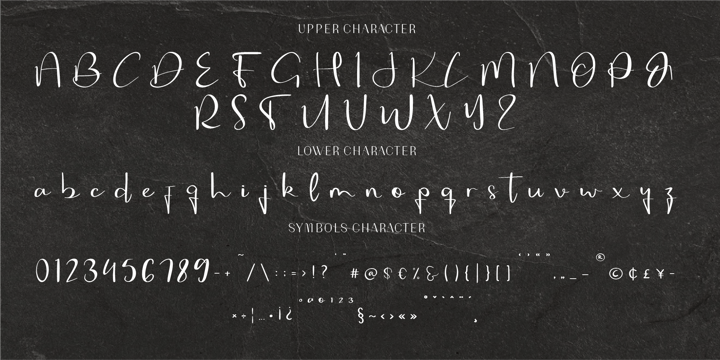 UPPER CHARACTER
A B C D E F G H I J K L M N O P Q
R S T U V W X Y Z
LOWER CHARACTER
a b c d e f g h i j k l m n o p q r s t u v w x y z
SYMBOLS CHARACTER
0123456789-+ ~ /\:;=>!? " " #@$€%&(){|}[] ' ' " " .,_- ® ©¢£¥-
×÷¦…•¡¿ ª º 0 1 2 3 §~‹›«» ¸